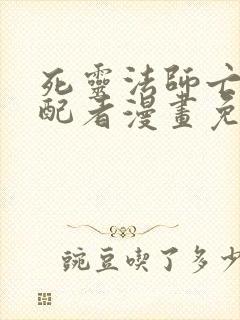 死靈法師亡
配者漫畫免
豌豆喫了多少